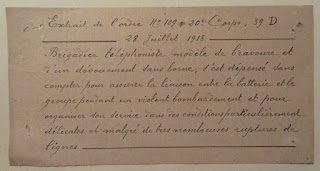 Extrait de l'ordre N° 109 20e Corps, 39 D
28 Juillet 1918
Brigadier téléphoniste modèle de bravoure et
d'un dévouement sans borne, s'est dépensé, sans
compter pour assurer la liaison entre la batterie et le
groupe pendant un violent bombardement et pour
organiser son service dans des conditions particulièrement
délicates et malgré de très nombreuses ruptures de
lignes